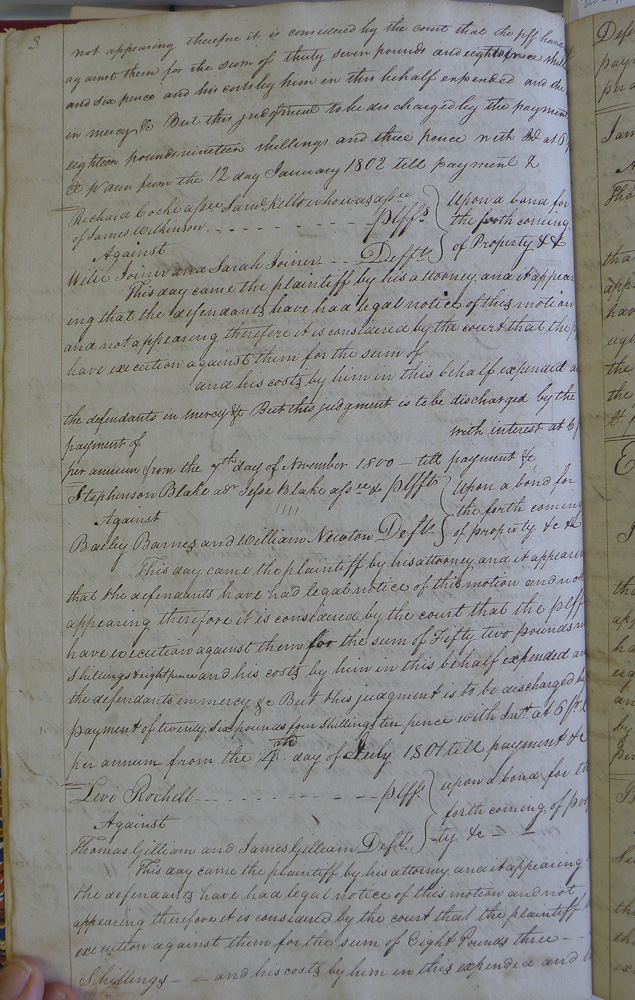 3.
not appearing therefore it is considered by the court that the plff have
against them for the sum of thirty seven pounds and eighteen
and six pence and his costs by him in this behalf expended and the
in mercy &c But this judgment to be discharged by the paymen
eighteen pounds nineteen shillings and three pence with Int at 6
& p ann from the 12 day January 1802 till payment &
Richard Cocke assee Saml Kello who was assee
of James Wilkinson - - - - - - - - plffs
Upon a bond for
the forth coming
of Property & &
Against
Wilie Joiner and Sarah Joiner - - - Defts
This day came the plaintiff by his attorney and it appear
ing that the defendants have had legal notice of this motion
and not appearing therefore it is considered by the court that the p
have execution against them for the sum of
and his costs by him in this behalf expended a
the defendants in mercy &c But this judgment is to be discharged by the
payment of with interest at 6 p
per annum from the 7th day of November 1800 - till payment &c
Stephenson Blake adr Jesse Blake assee &c plffs
Upon a bond for
the forth coming
of property &c &c
Against
Bailey Barnes and William Newton Defts
This day came the plaintiff by his attorney and it appearin
that the defendants have had legal notice of this motion and not
appearing therefore it is considered by the court that the plff
have execution against them for the sum of Fifty two pounds
shillings & eight pence and his costs by him in this behalf expended an
the defendants in mercy &c But this judgment is to be discharged b
payment of twenty six pounds four shillings ten pence with Int. at 6 pr
per annum from the 4th day of July 1801 till payment &c
Levi Rochell - - - - - - - - - - plffs
upon a bond for th
forth coming of prop
ty &c - -
Against
Thomas Gilliam and James Gilliam Defts.
This day came the plaintiff by his attorney and it appearing
the defendants have had legal notice of this motion and not
appearing therefore it is considered by the court that the plaintiff
execution against them for the sum of Eight Pounds three -
Shillings - - and his costs by him in this expended and